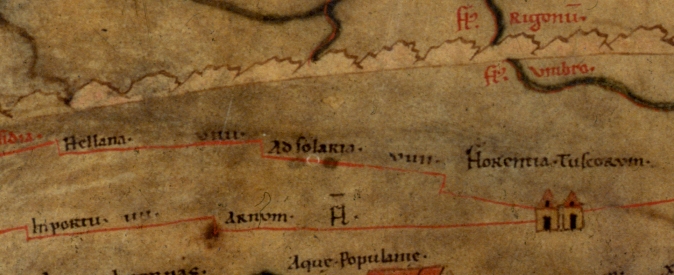 Fl. Rigonū.
Fl. Vmbro.
Hellana. VIIII. Ad solaria. VIIII. Florentia Tuscorum.
In portu. IIII. Arnum. Fl.
Aque Populanie.